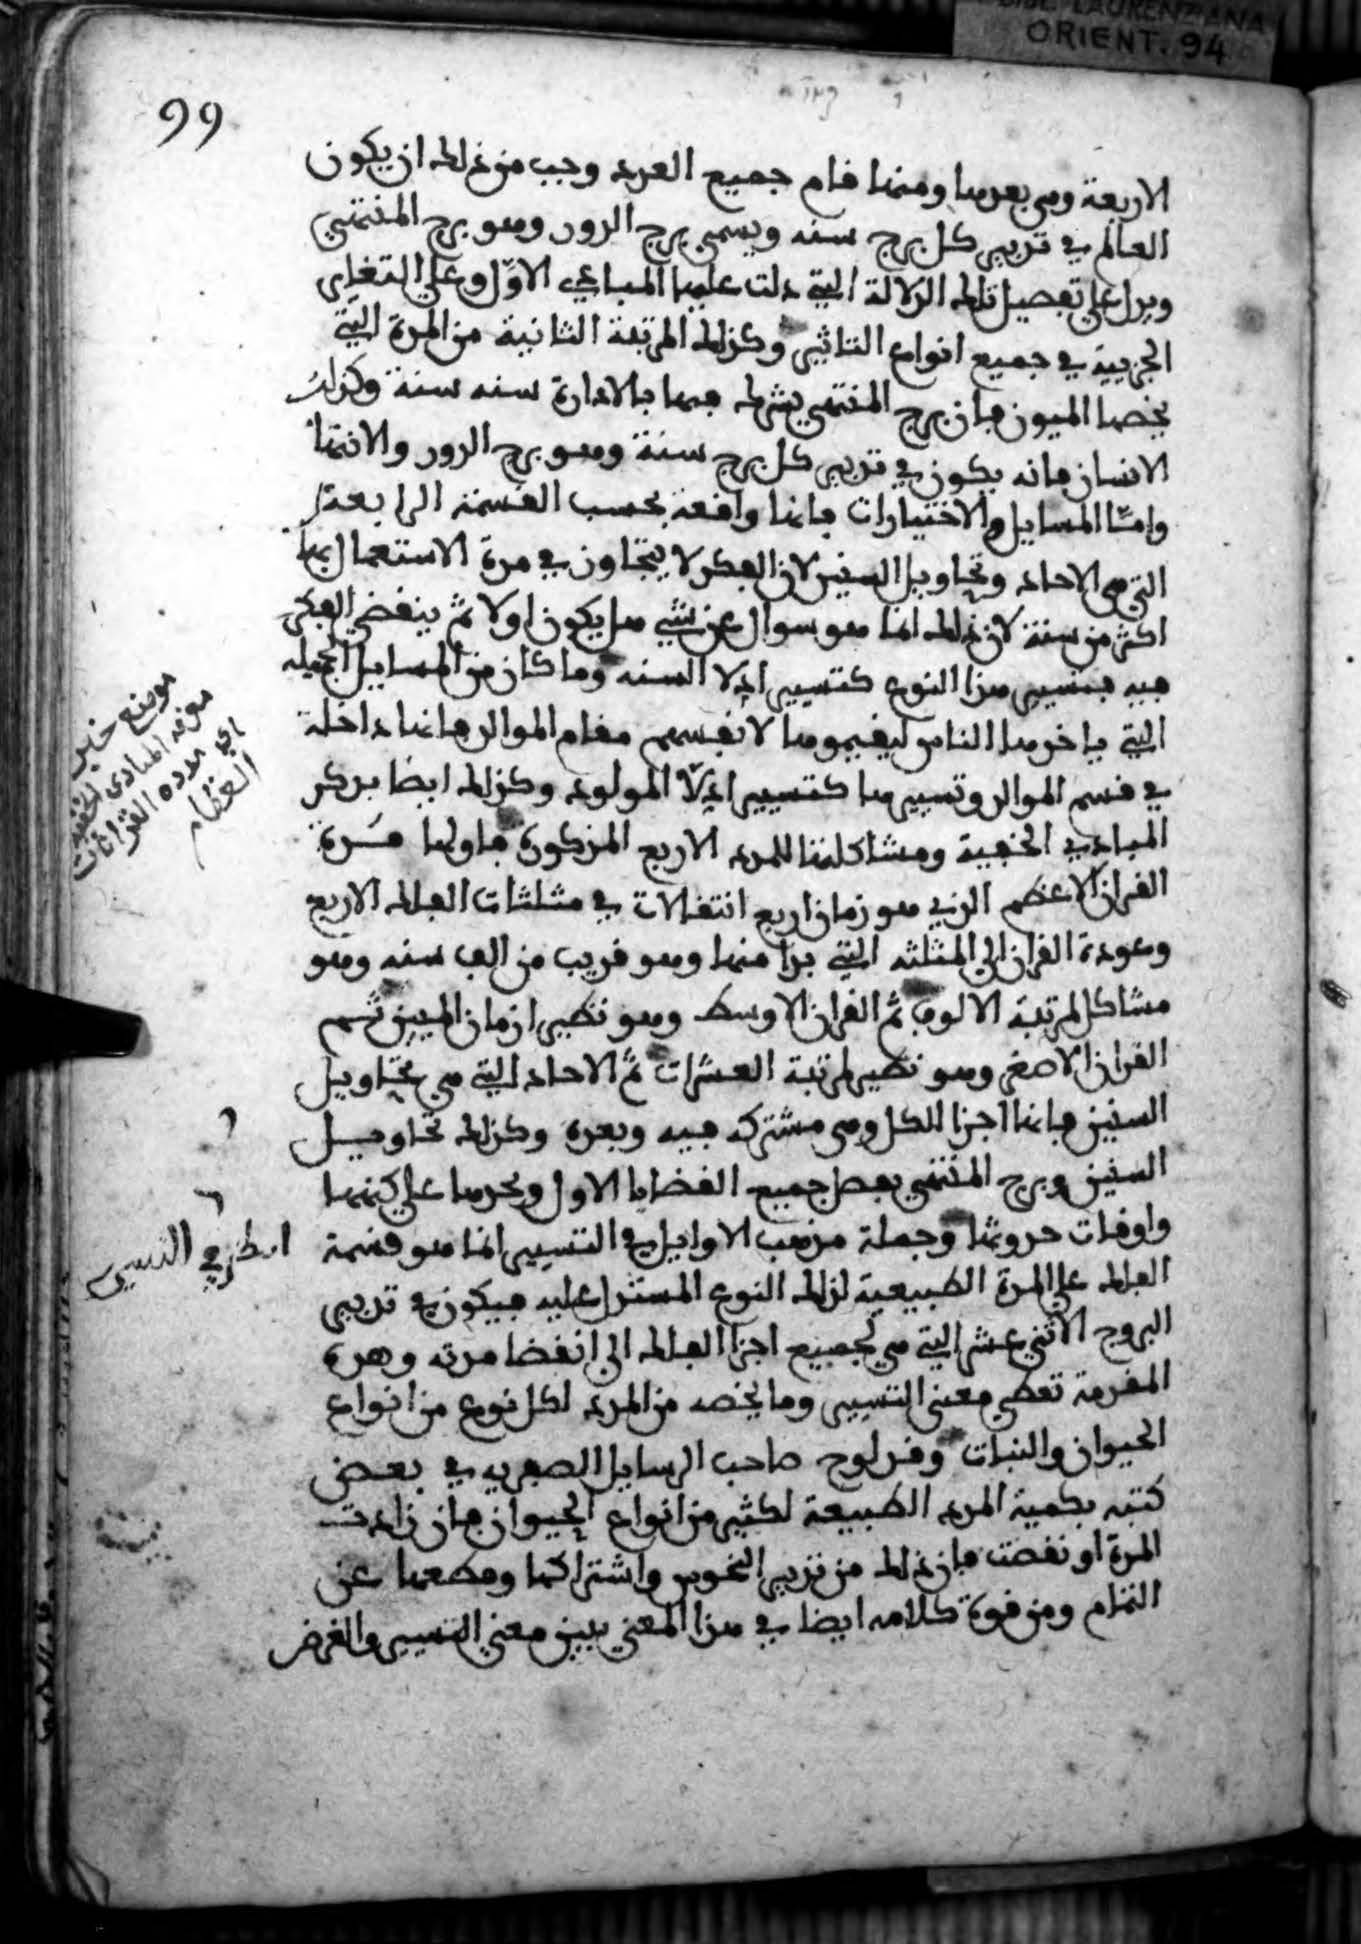 BIBL. LAURENZIANA
ORIENT. 94
99
الاربعة ومن بعدها ومنها قام جميع العدد وجب من ذلك ان يكون
العالم في تدبير كل برج سنه ويسمى برج الدور وهو برج المنتهى
ويدل على تفصيل تلك الدلالة التي دلت عليها المبادي الاول وعلى التغاير
الجزيية في جميع انواع التاثير وكذلك المرتبة الثانية من المدة التي
يخصها الميون فان برج المنتهى يشرك فيها بالادارة سنه سنة وكذلك
الانسان فانه يكون في تدبير كل برج سنة وهو برج الدور والانتها
وامّا المسايل والاختيارات فانها واقعة بحسب القسمة الرابعة
التي هي الاحاد وتحاويل السنين لان الفكر لا يتجاوز في مدة الاستعمال بها
اكثر من سنة لان ذلك انما هو سوال عن شي هل يكون اولا ثم ينقضي الفكر
فيه فتسيير هذا النوع كتسيير ادلا السنه وما كان من المسايل الجميله
التي ياخذها الناس ليقيموها لانفسهم مقام الموالد فانها داخلة
في قسم الموالد وتسييرها كتسيير ادلّا المولود وكذلك ايضا بذكر
المبادي الخفية ومشاكلتها للمدد الاربع المذكورة فاولها مدة
القران الاعظم الذي هو زمان اربع انتقالات في مثلثات الفلك الاربع
وعودة القران الى المثلثه التي بدا منها وهو قريب من الف سنه وهو
مشاكل لمرتبة الالوف ثم القران الاوسط وهو نظير ازمان الميين ثم
القران الاصغر وهو نظير لمرتبة العشرات ثم الاحاد التي هي تحاويل
السنين فانها اجزا للكل وهي مشتركه فيه وبعده وكذلك تحاويل
السنين وبرج المنتهى يفصل جميع القضايا الاول ويحدها على كنهها
واوقات حدوثها وجملة مذهب الاوايل في التسيير انما هو قسمة
الفلك على المدة الطبيعية لذلك النوع المستدل عليه فيكون في تدبير
البروج الاثني عشر التي هي لجميع اجزا الفلك الى انقضا مدته وهذه
المقدمة تعطي معنى التسيير وما يخصه من المدد لكل نوع من انواع
الحيوان والنبات وقد لوح صاحب الرسايل الصفريه في بعض
كتبه بكمية المدد الطبيعة لكثير من انواع الحيوان فان زادت
المدة او نقصت فان ذلك من تدبير النحوس واشتراكها وقطعها عن
التمام ومن قوة كلامه ايضا في هذا المعنى يبين معنى التسيير والغرض
موضع خبر
معرفه المبادي الخفيه
اي مدده القرانات
العظام
انظر في التسيير